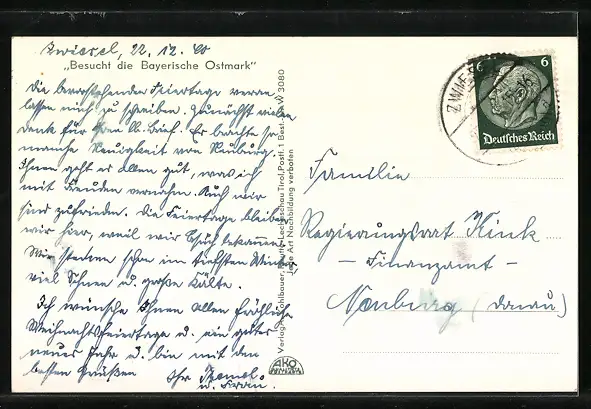 Zwiesel, 22. 12. 40
„Besucht die Bayerische Ostmark"
Die bevorstehenden Feiertage veran-
lassen mich zu schreiben. Zunächst vielen
Dank für Ihren lb. Brief. Er brachte so
manche Neuigkeit von Neuburg.
Ihnen geht es allen gut, was ich
mit Freuden vernahm. Auch wir
sind zufrieden. Die Feiertage bleiben
wir hier, weil wir Besuch bekommen.
Wir stecken schon im tiefsten Winter,
viel Schnee u. große Kälte.
Ich wünsche Ihnen allen fröhliche
Weihnachtsfeiertage u. ein gutes
neues Jahr u. bin mit den
besten Grüßen
Ihr
u. Frau.
Verlag Wohlbauer, Moritz-Lechaschau Tirol, Postf. 1 Best. W 3080
Jede Art Nachbildung verboten
AKO
ZWIESEL
6 6
Deutsches Reich
Familie
Regierungsrat Kink
- Finanzamt -
Neuburg (Donau)